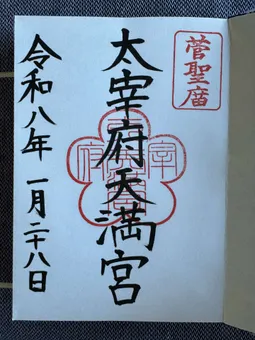 菅聖廟
太宰府天満宮
宰
府
令和八年 一月二十八日